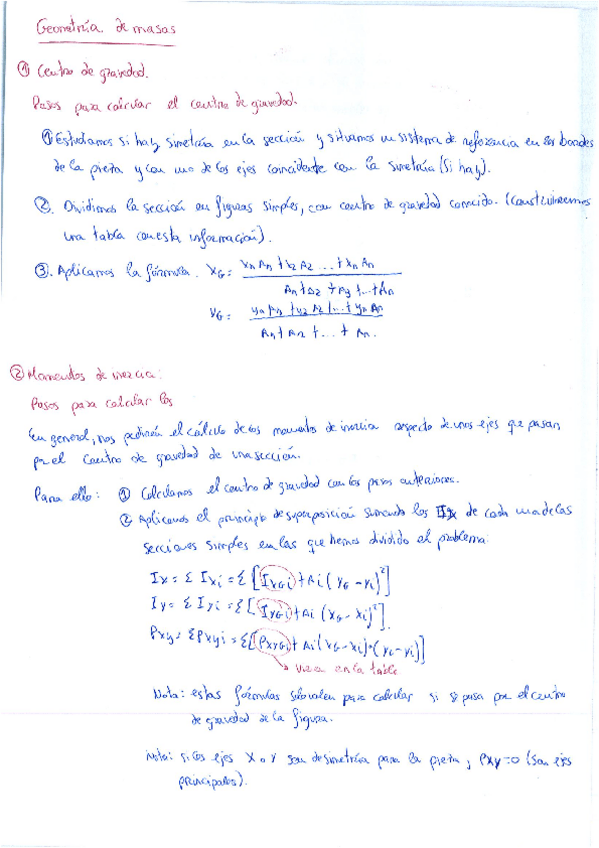 Geometría de masas
① Centro de gravedad.
Pasos para calcular el centro de gravedad.
① Estudiamos si hay simetría en la sección y situamos un sistema de referencia en los bordes
de la pieza y con uno de los ejes coincidente con la simetría (si hay).
②. Dividimos la sección en figuras simples, con centro de gravedad conocido. (Construiremos
una tabla con esta información).
③. Aplicamos la fórmula. XG = x1 A1 + x2 A2 ... + xn An / A1 + A2 + A3 + ... + An
YG = y1 A1 + y2 A2 + ... + yn An / A1 + A2 + ... + An.
② Momentos de inercia:
Pasos para calcular los
En general, nos pedirán el cálculo de los momentos de inercia respecto de unos ejes que pasan
por el centro de gravedad de una sección.
Para ello: ① Calculamos el centro de gravedad con los pasos anteriores.
② Aplicamos el principio de superposición sumando los Ix de cada una de las
secciones simples en las que hemos dividido el problema:
Ix = Σ Ixi = Σ [IxGi + Ai (yG - yi)²]
Iy = Σ Iyi = Σ [IyGi + Ai (xG - xi)²].
Pxy = Σ Pxyi = Σ [PxyGi + Ai (xG - xi)·(yG - yi)]
→ viene en la tabla
Nota: estas fórmulas solo valen para calcular si se pasa por el centro
de gravedad de la figura.
Nota: si los ejes X o Y son de simetría para la pieza, Pxy = 0 (son ejes
principales).